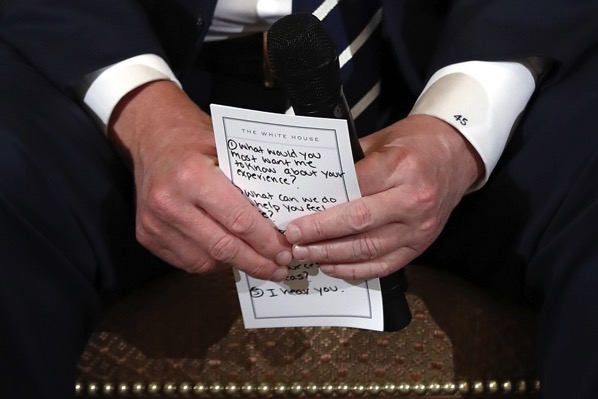 THE WHITE HOUSE
① What would you
most want me
to know about your
experience?
What can we do
help you feel
⑤ I hear you.
45